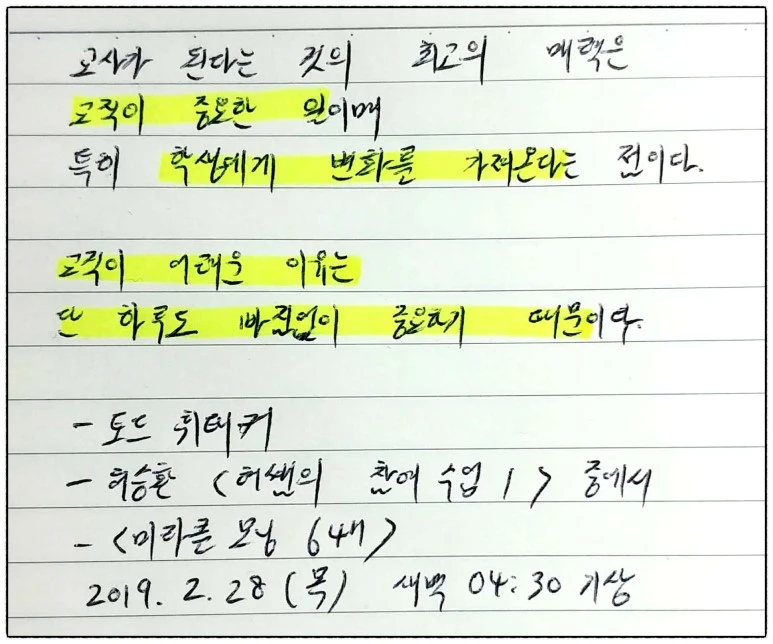 교사가 된다는 것의 최고의 매력은
교직이 중요한 일이며
특히 학생에게 변화를 가져온다는 점이다.
교직이 어려운 이유는
단 하루도 빠짐없이 중요하기 때문이다.
- 토드 휘태커
- 허승환 <허쌤의 참여 수업 1> 중에서
- <미라클 모닝 64>
2019. 2. 28 (목) 새벽 04:30 기상